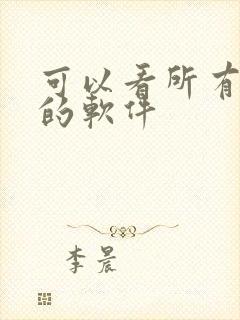 可以看所有
的軟件
李晨